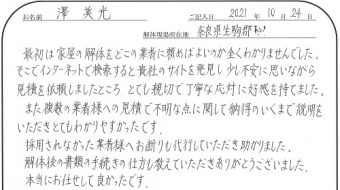 お名前 澤 美光 ご記入日 2021年10月24日
解体現場所在地 奈良県生駒郡
最初は家屋の解体をどこの業者に頼めばよいか全くわかりませんでした。
そこでインターネットで検索すると貴社のサイトを発見し少し不安に思いながら
見積を依頼しましたところ とても親切で丁寧な応対に好感を持てました。
また複数の業者様への見積で不明な点に関して納得のいくまで説明を
いただきとてもわかりやすかったです。
採用されなかった業者様へお断りも代行していただき助かりました。
解体後の書類の手続きの仕方も教えていただきありがとうございました。
本当にお任せして良かったです。